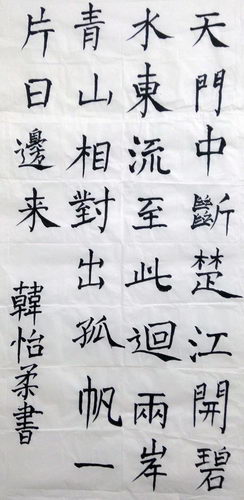 天門中斷楚江開碧
水東流至此迴兩岸
青山相對出孤帆一
片日邊来
韓怡柔書